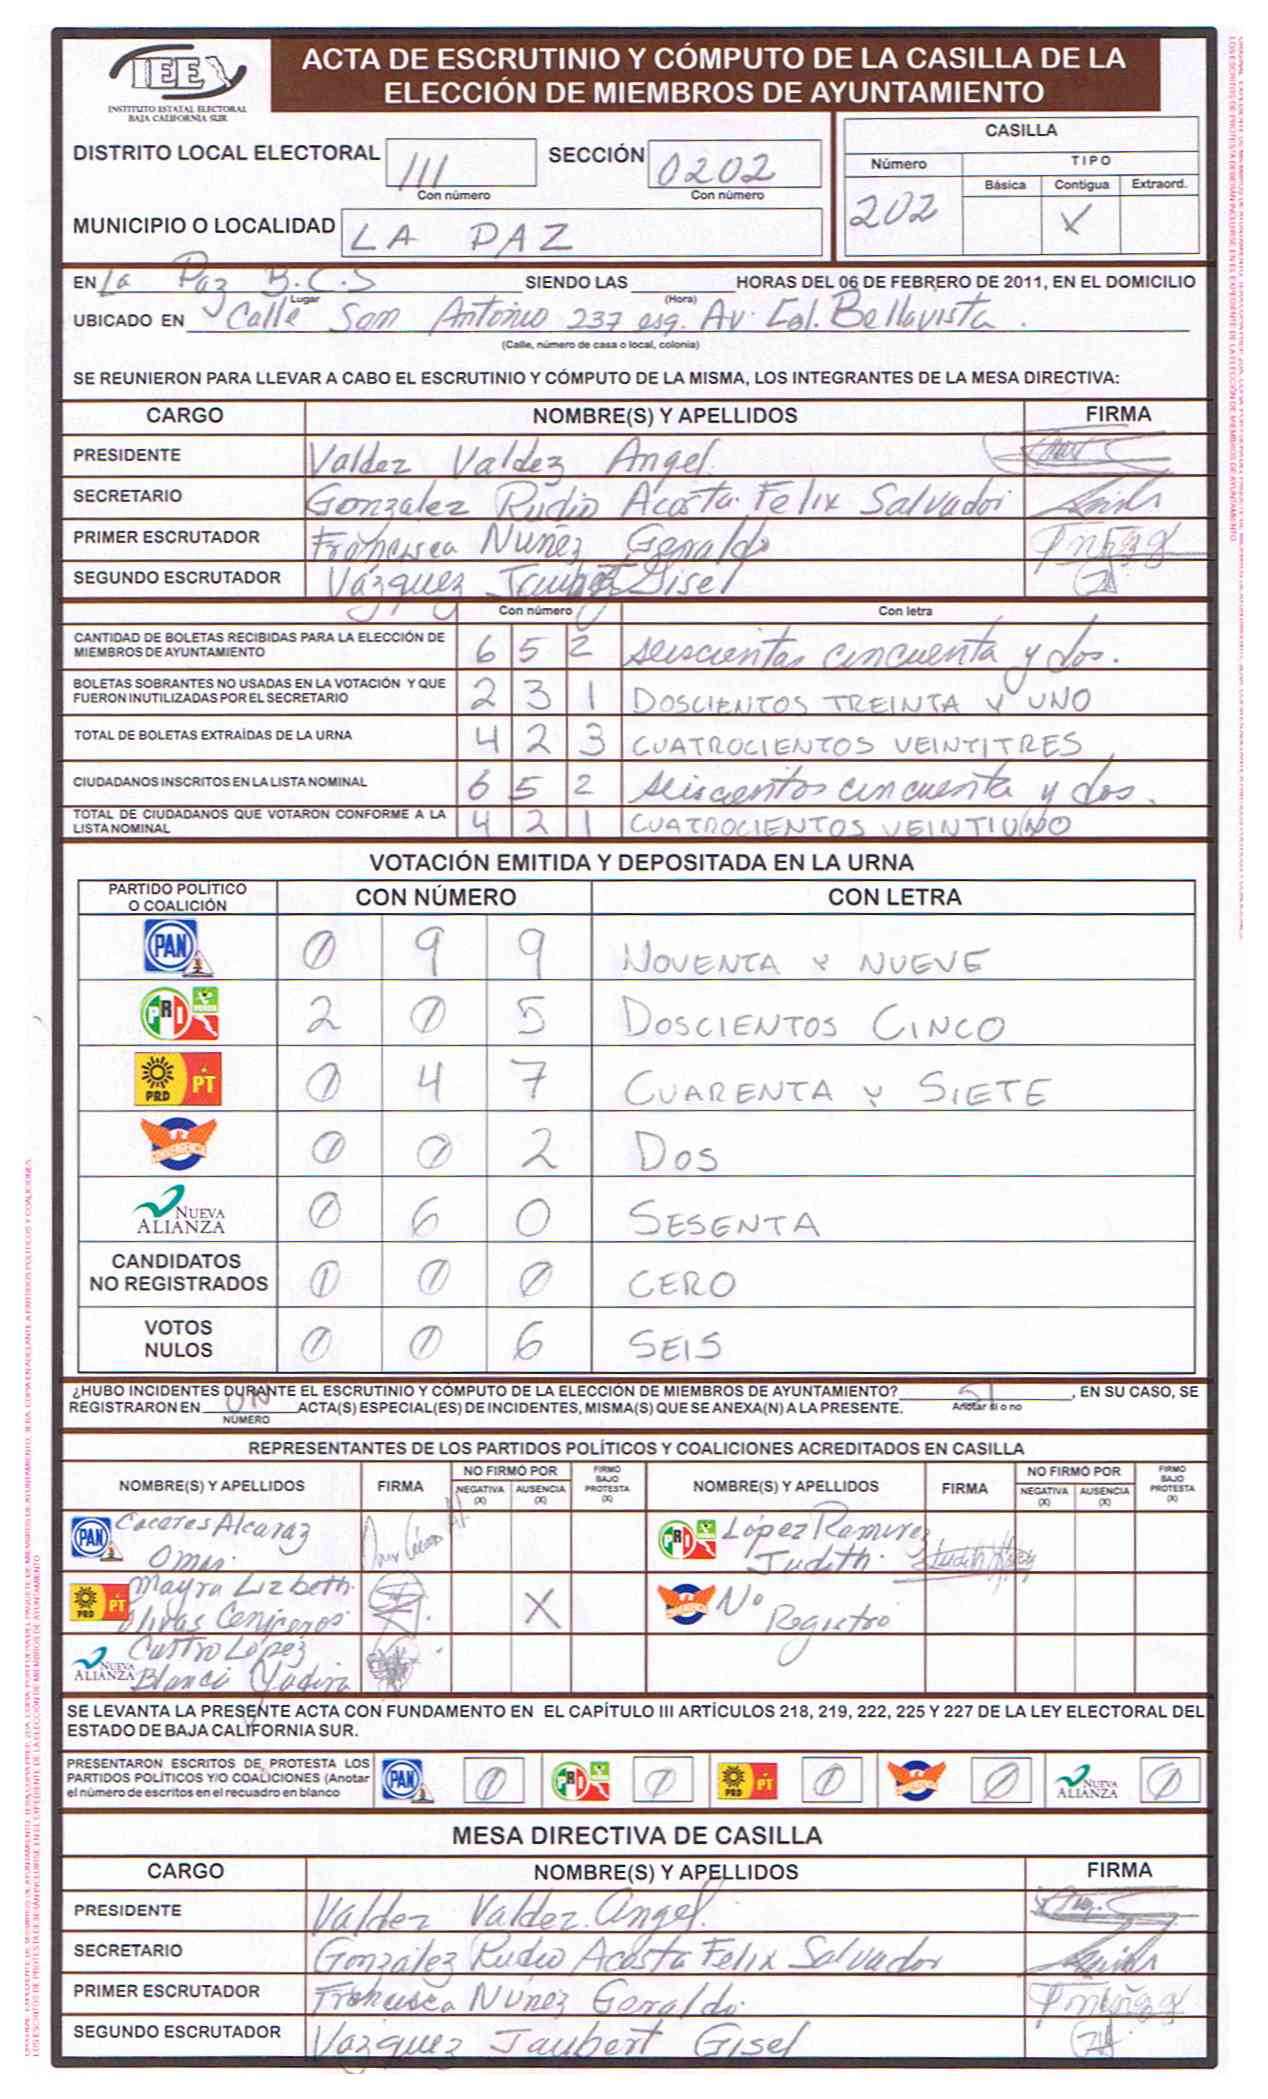 IEE
INSTITUTO ESTATAL ELECTORAL
BAJA CALIFORNIA SUR
ACTA DE ESCRUTINIO Y CÓMPUTO DE LA CASILLA DE LA
ELECCIÓN DE MIEMBROS DE AYUNTAMIENTO
DISTRITO LOCAL ELECTORAL III SECCIÓN 0202
Con número Con número
MUNICIPIO O LOCALIDAD LA PAZ
CASILLA
Número TIPO
Básica Contigua Extraord.
202 X
EN La Paz B.C.S SIENDO LAS HORAS DEL 06 DE FEBRERO DE 2011, EN EL DOMICILIO
Lugar (Hora)
UBICADO EN Calle San Antonio 237 esq. Av. Col. Bellavista.
(Calle, número de casa o local, colonia)
SE REUNIERON PARA LLEVAR A CABO EL ESCRUTINIO Y CÓMPUTO DE LA MISMA, LOS INTEGRANTES DE LA MESA DIRECTIVA:
CARGO NOMBRE(S) Y APELLIDOS FIRMA
PRESIDENTE Valdez Valdez Angel.
SECRETARIO Gonzalez Rudio Acosta Felix Salvador
PRIMER ESCRUTADOR Francisca Nuñez Geraldo
SEGUNDO ESCRUTADOR Vázquez Jaubert Gisel
Con número Con letra
CANTIDAD DE BOLETAS RECIBIDAS PARA LA ELECCIÓN DE
MIEMBROS DE AYUNTAMIENTO 6 5 2 seiscientas cincuenta y dos.
BOLETAS SOBRANTES NO USADAS EN LA VOTACIÓN Y QUE
FUERON INUTILIZADAS POR EL SECRETARIO 2 3 1 DOSCIENTOS TREINTA Y UNO
TOTAL DE BOLETAS EXTRAÍDAS DE LA URNA 4 2 3 CUATROCIENTOS VEINTITRES
CIUDADANOS INSCRITOS EN LA LISTA NOMINAL 6 5 2 seiscientos cincuenta y dos.
TOTAL DE CIUDADANOS QUE VOTARON CONFORME A LA
LISTA NOMINAL 4 2 1 CUATROCIENTOS VEINTIUNO
VOTACIÓN EMITIDA Y DEPOSITADA EN LA URNA
PARTIDO POLÍTICO
O COALICIÓN CON NÚMERO CON LETRA
PAN 0 9 9 NOVENTA Y NUEVE
PRI VERDE 2 0 5 DOSCIENTOS CINCO
PRD PT 0 4 7 CUARENTA Y SIETE
CONVERGENCIA 0 0 2 DOS
NUEVA ALIANZA 0 6 0 SESENTA
CANDIDATOS
NO REGISTRADOS 0 0 0 CERO
VOTOS
NULOS 0 0 6 SEIS
¿HUBO INCIDENTES DURANTE EL ESCRUTINIO Y CÓMPUTO DE LA ELECCIÓN DE MIEMBROS DE AYUNTAMIENTO? SI, EN SU CASO, SE
REGISTRARON EN UN ACTA(S) ESPECIAL(ES) DE INCIDENTES, MISMA(S) QUE SE ANEXA(N) A LA PRESENTE. Anotar si o no
NÚMERO
REPRESENTANTES DE LOS PARTIDOS POLÍTICOS Y COALICIONES ACREDITADOS EN CASILLA
NOMBRE(S) Y APELLIDOS FIRMA NO FIRMÓ POR NEGATIVA (X) AUSENCIA (X) FIRMÓ BAJO PROTESTA (X) NOMBRE(S) Y APELLIDOS FIRMA NO FIRMÓ POR NEGATIVA (X) AUSENCIA (X) FIRMÓ BAJO PROTESTA (X)
PAN Caceres Alcaraz
Omar.
PRI López Ramirez
Judith.
PRD PT Mayra Lizbeth
Olivas Ceniceros X
CONVERGENCIA No
Registró
NUEVA ALIANZA Castro López
Blanca Yadira
SE LEVANTA LA PRESENTE ACTA CON FUNDAMENTO EN EL CAPÍTULO III ARTÍCULOS 218, 219, 222, 225 Y 227 DE LA LEY ELECTORAL DEL
ESTADO DE BAJA CALIFORNIA SUR.
PRESENTARON ESCRITOS DE PROTESTA LOS
PARTIDOS POLÍTICOS Y/O COALICIONES (Anotar
el número de escritos en el recuadro en blanco
PAN 0 PRI 0 PRD PT 0 CONVERGENCIA 0 NUEVA ALIANZA 0
MESA DIRECTIVA DE CASILLA
CARGO NOMBRE(S) Y APELLIDOS FIRMA
PRESIDENTE Valdez Valdez Angel.
SECRETARIO González Rudio Acosta Felix Salvador
PRIMER ESCRUTADOR Francisca Nuñez Geraldo.
SEGUNDO ESCRUTADOR Vazquez Jaubert Gisel